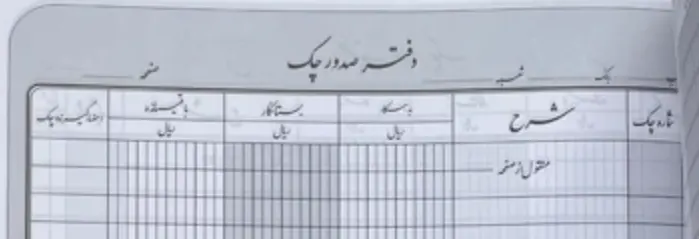 دفتر صدور چک
بانک شعبه صفحه
شماره چک شرح بدهکار بستانکار باقیمانده امضاء گیرنده چک
ریال ریال ریال
منقول از صفحه